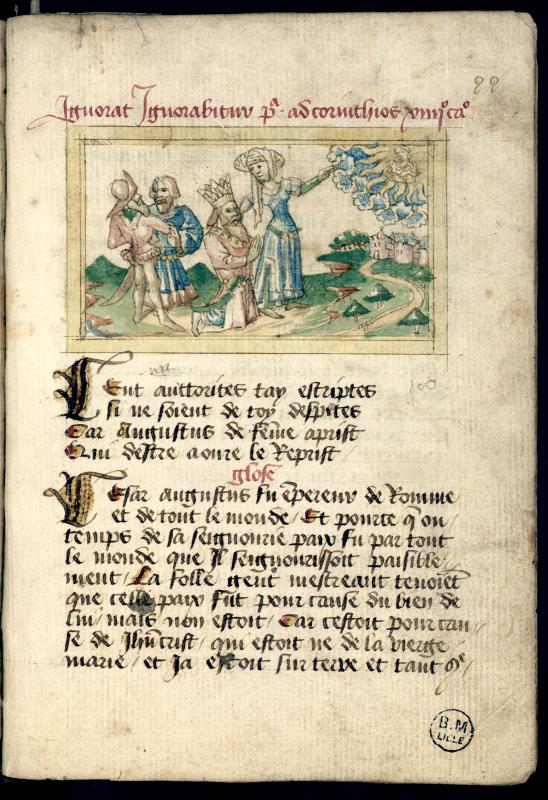 99
Ignorat Ignorabitur pᵃ ad corinthios xiiijº caº
100
Cent auttorites tay escriptes
Si ne soient de toy despites
Car Augustus de feme aprist
Qui destre aoure le Reprist
glose
Cesar augustus fu empereur de Romme
et de tout le monde / Et pource q̄ ou
temps de sa seignourie paix fu par tout
le monde que Il seignourissoit paisible
ment / La folle gent mescreant tenoiēt
que celle paix fut pour cause du bien de
lui / mais non estoit / Car cestoit pour cau
se de Jhūcrist / qui estoit ne de la vierge
marie / et Ja estoit sur terre et tant
B.M
LILLE